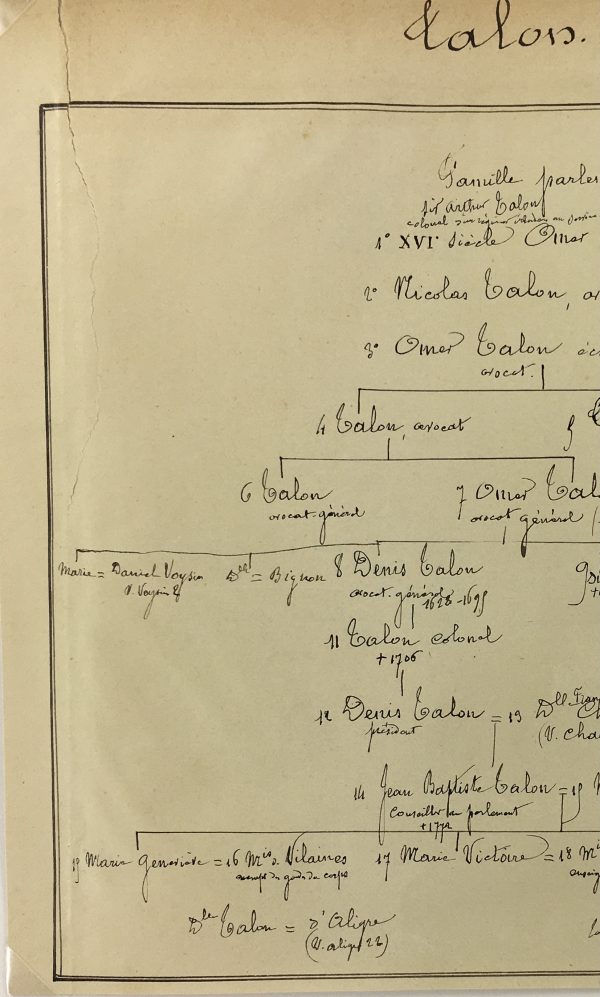 Talon.
Famille parle
sir Arthur Talon
colonel d'un régiment irlandais au service
1° XVIe Siècle Omer
2° Nicolas Talon, av
3° Omer Talon éc
avocat.
4 Talon, avocat
5
6 Talon 7 Omer Tal
avocat-général avocat général
Marie = Daniel Voysin Dlle = Bignon 8 Denis Talon 9
V. Voysin avocat-général
1628-1698
11 Talon colonel
+1706
12 Denis Talon = 13 Dlle Fran
président (V. Cha
14 Jean Baptiste Talon = 15
Conseiller au parlement
+1772
15 Marie Geneviève = 16 Mis de Vilaines 17 Marie Victoire = 18 Mis
exempt des gardes du corps enseig
Dlle Talon = d'Aligre
(V. aligre 22)